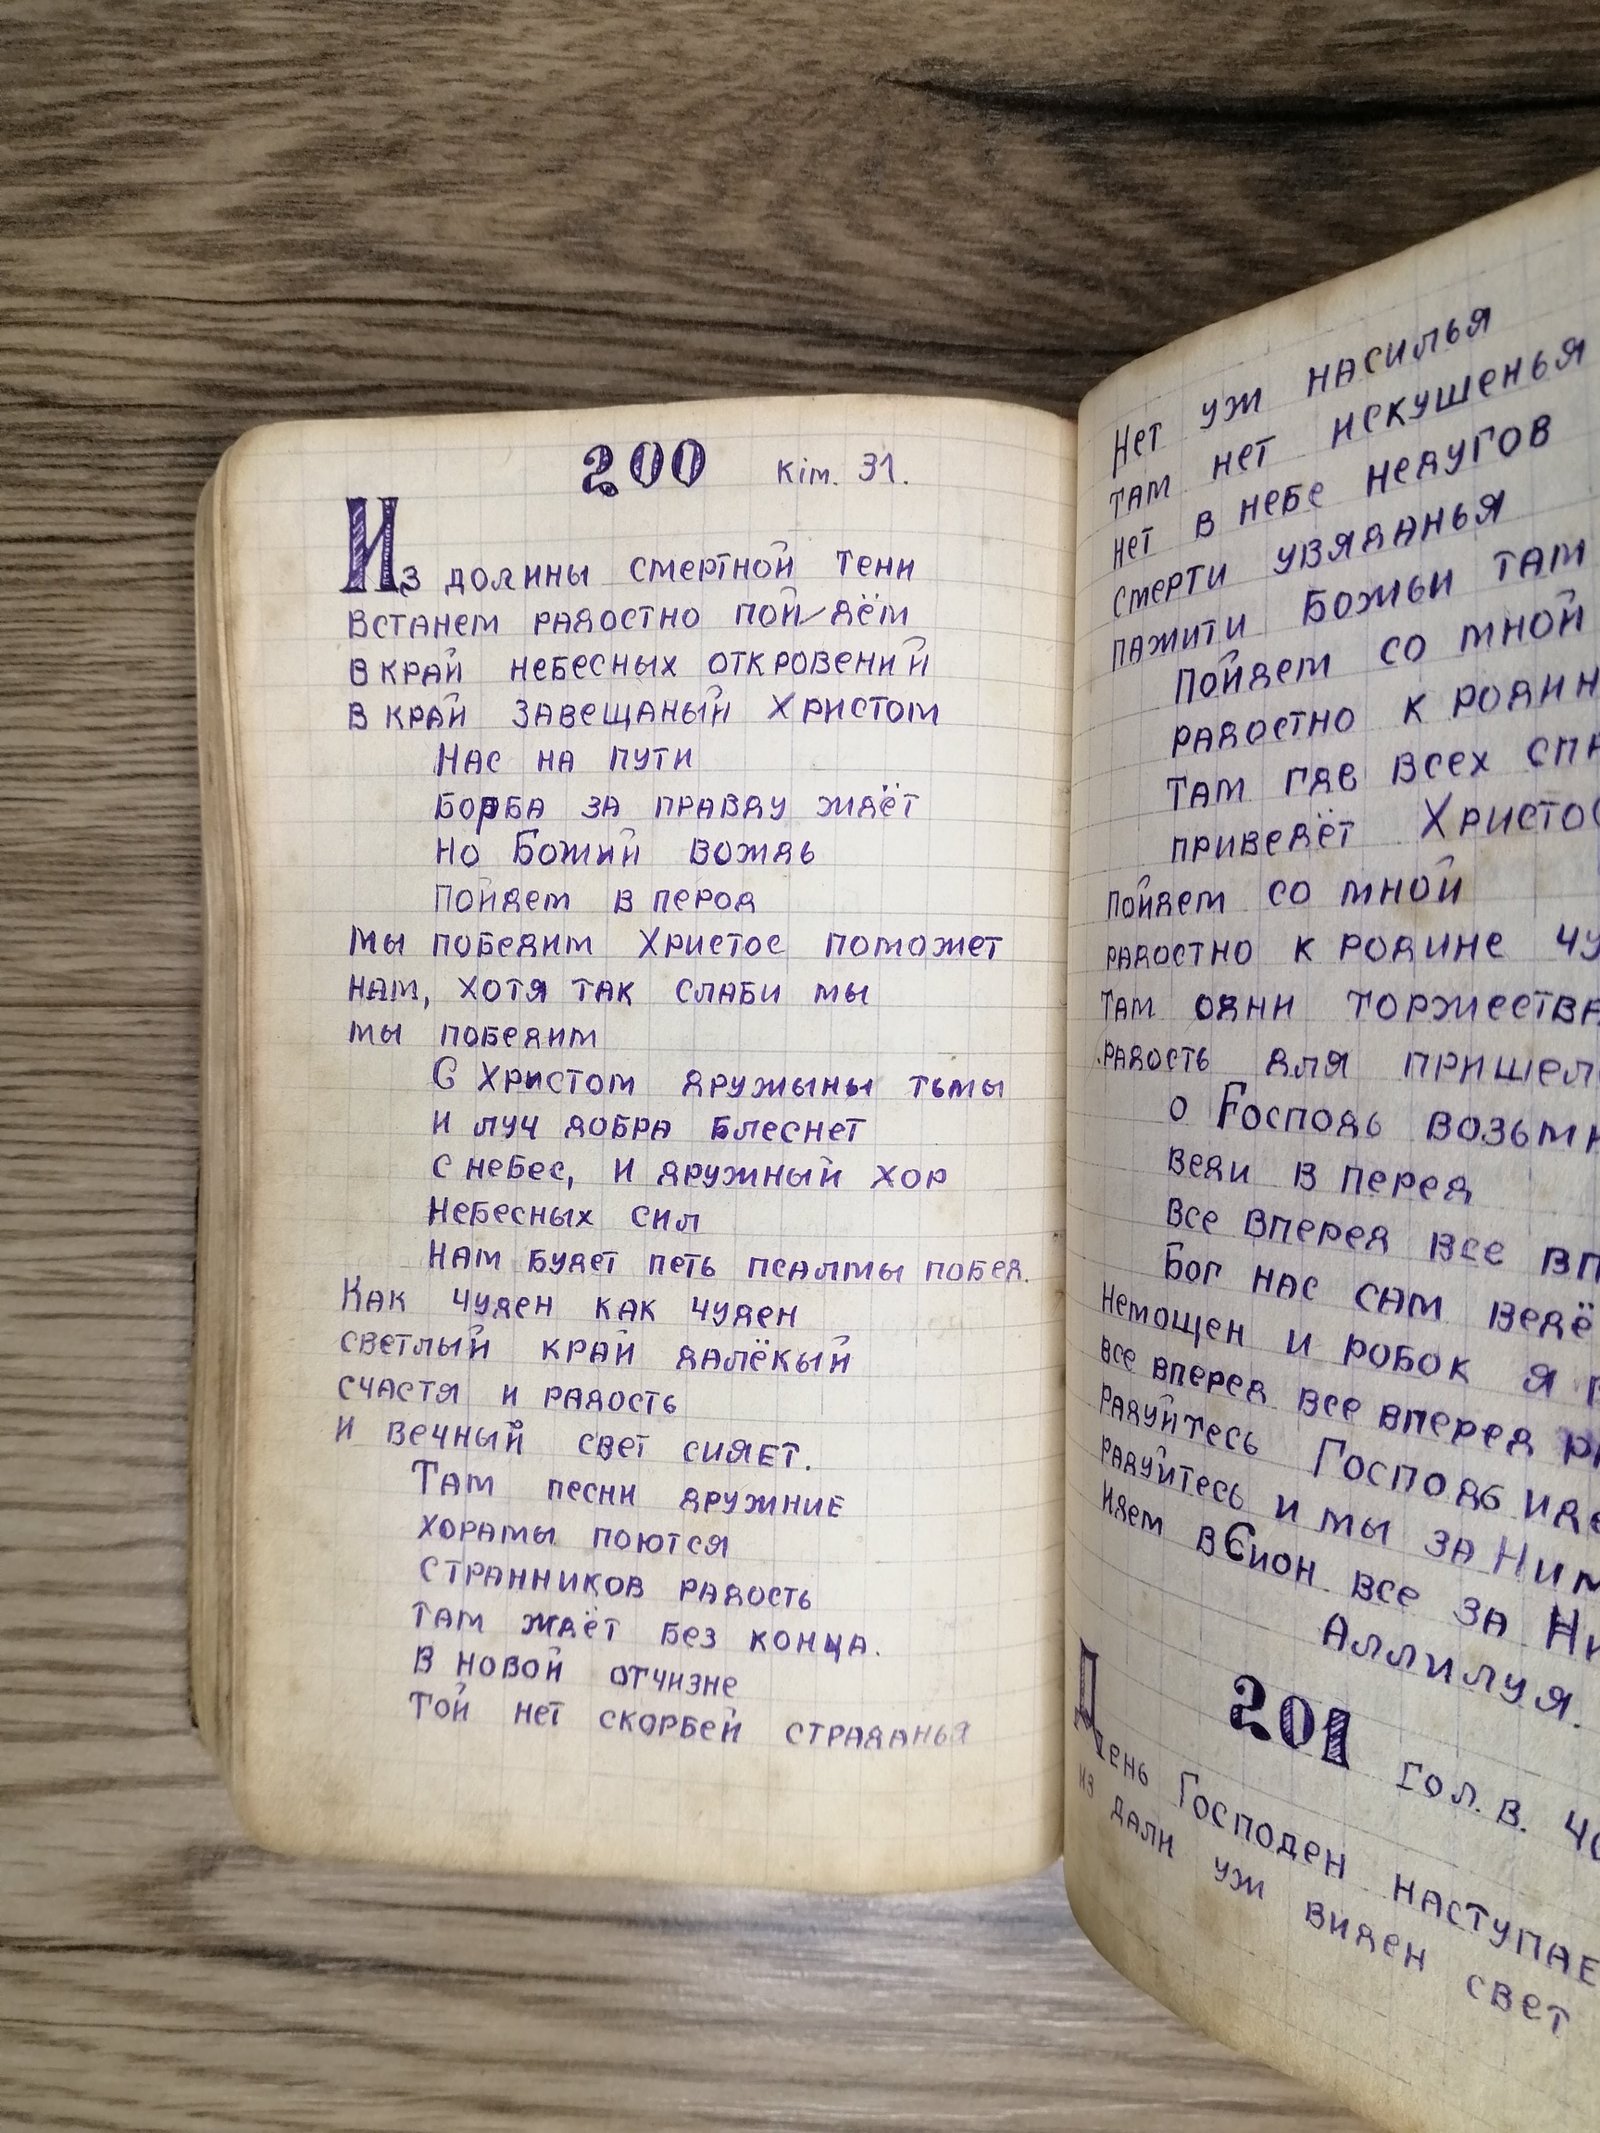 200 кіт. 31.
Из долины смертной тени
встанем радостно пойдём
в край небесных откровений
в край завещаный Христом
Нас на пути
борба за правду ждёт
но Божий вождь
пойдем в перод
мы победим Христос поможет
нам, хотя так слаби мы
мы победим
С Христом дружыны тьмы
и луч добра блеснет
с небес, и дружный хор
небесных сил
нам будет петь псалмы побед.
Как чуден как чуден
светлый край далёкый
счастя и радость
и вечный свет сияет.
Там песни дружние
хорамы поются
странников радость
там ждёт без конца.
в новой отчизне
той нет скорбей страданья
Нет уж насилья
там нет искушенья
нет в небе недугов
смерти увяданья
пажити Божьи там
пойдем со мной
радостно к родин
там где всех спа
приведёт Христос
пойдем со мной
радостно к родине чу
там одни торжества
радость для пришел
о Господь возьми
веди в перед
все вперед все вп
Бог нас сам ведё
немощен и робок я
все вперед все вперед ра
радуйтесь Господь иде
радуйтесь и мы за Ним
идем в Сион все за Ни
Аллилуя.
201 гол. в. 40
День Господен наступае
из дали уж виден свет